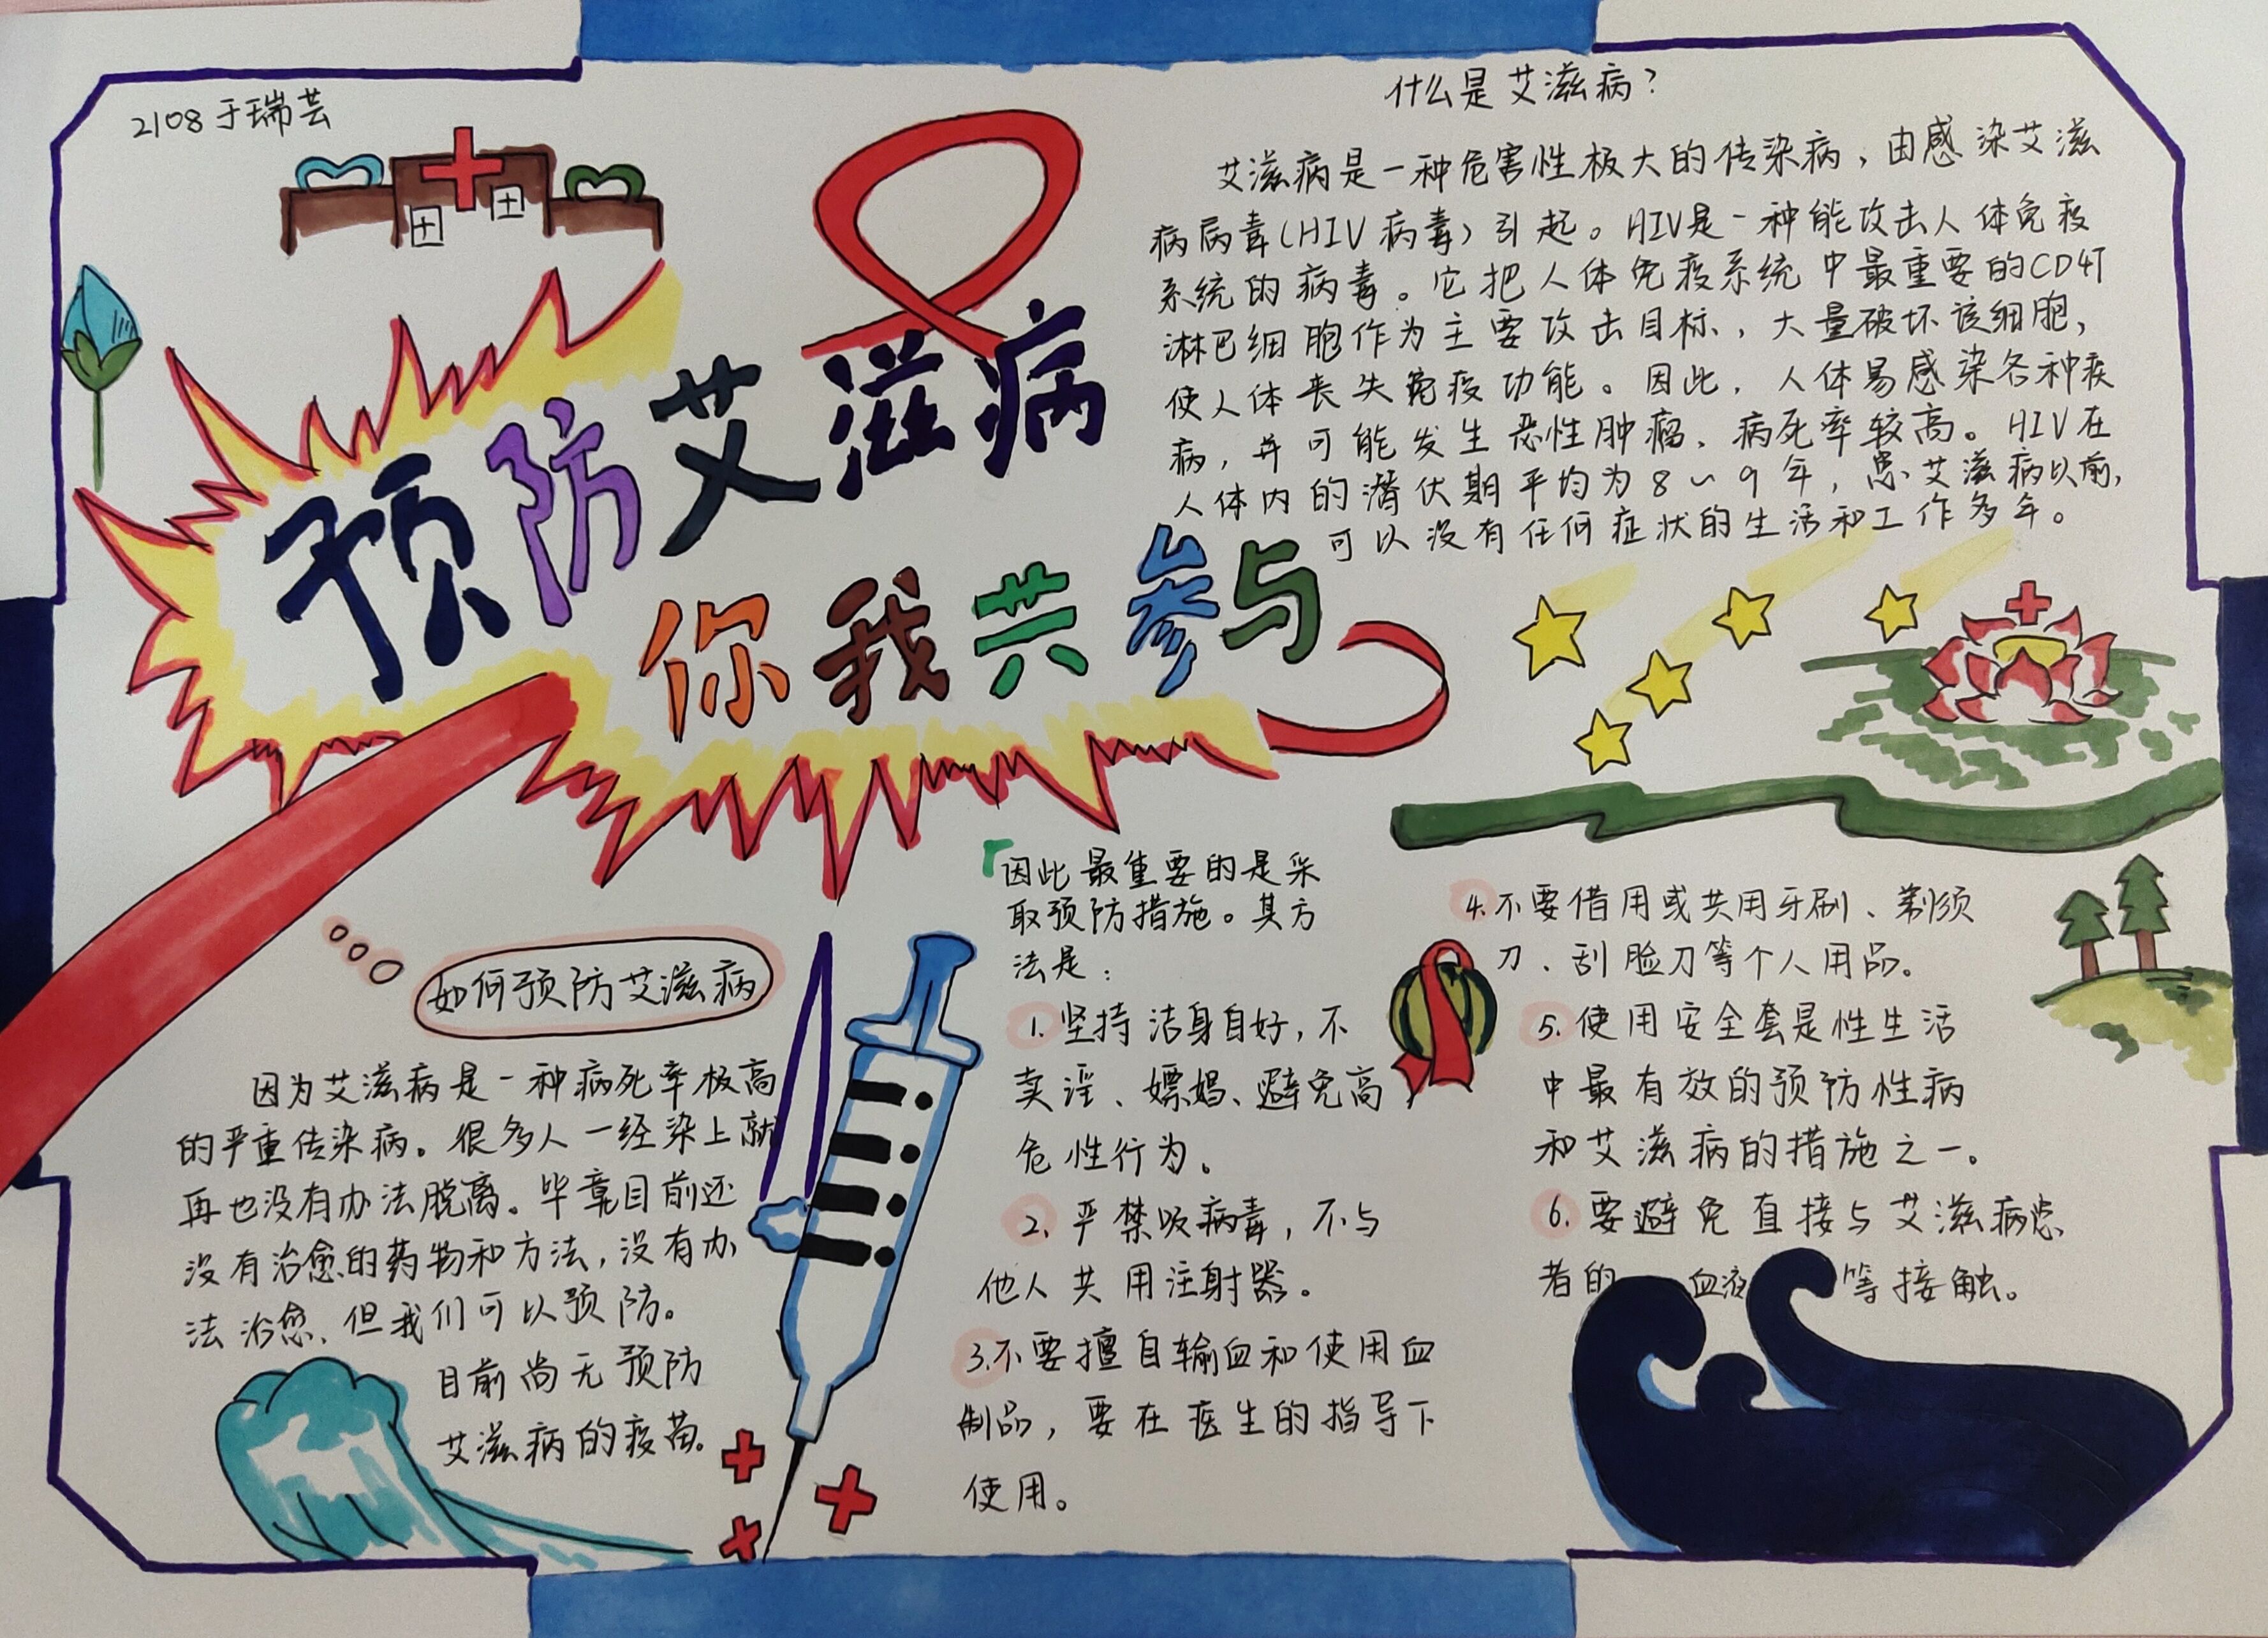 2108于瑞芸
预防艾滋病
你我共参与
什么是艾滋病？
艾滋病是一种危害性极大的传染病，由感染艾滋
病病毒（HIV病毒）引起。HIV是一种能攻击人体免疫
系统的病毒。它把人体免疫系统中最重要的CD4T
淋巴细胞作为主要攻击目标，大量破坏该细胞，
使人体丧失免疫功能。因此，人体易感染各种疾
病，并可能发生恶性肿瘤，病死率较高。HIV在
人体内的潜伏期平均为8～9年，患艾滋病以前，
可以没有任何症状的生活和工作多年。
如何预防艾滋病
因为艾滋病是一种病死率极高
的严重传染病。很多人一经染上就
再也没有办法脱离。毕竟目前还
没有治愈的药物和方法，没有办
法治愈，但我们可以预防。
目前尚无预防
艾滋病的疫苗。
因此最重要的是采
取预防措施。其方
法是：
1.坚持洁身自好，不
卖淫、嫖娼、避免高
危性行为。
2.严禁吸病毒，不与
他人共用注射器。
3.不要擅自输血和使用血
制品，要在医生的指导下
使用。
4.不要借用或共用牙刷、剃须
刀、刮脸刀等个人用品。
5.使用安全套是性生活
中最有效的预防性病
和艾滋病的措施之一。
6.要避免直接与艾滋病患
者的血液等接触。